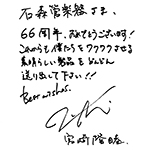 石森管楽器さま、
66周年、おめでとうございます!
これからも僕たちをワクワクさせる
素晴らしい製品をどんどん
送り出して下さい!!
Best wishes.
宮崎隆睦